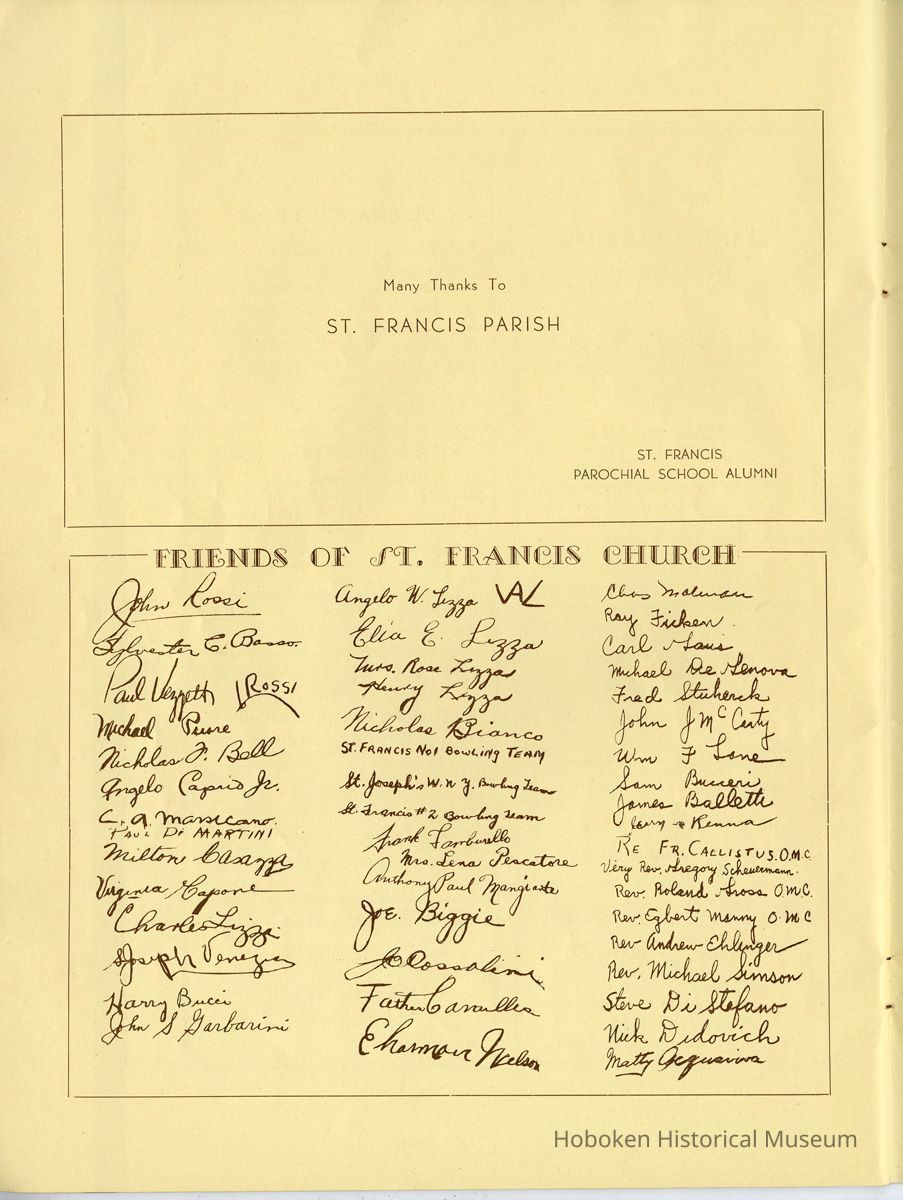 Many Thanks To
ST. FRANCIS PARISH
ST. FRANCIS
PAROCHIAL SCHOOL ALUMNI
FRIENDS OF ST. FRANCIS CHURCH
John Rossi
Sylvester C. Basso
Paul Vezzetti J Rossi
Michael
Nicholas F. Bell
Angelo Caprio Jr.
C. A. Marsicano
PAUL DI MARTINI
Milton Casazza
Virginia Capone
Charles Lizza
Joseph Venezia
Harry Bucci
John S Garbarini
Angelo W. Lizza VAL
Elia E. Lizza
Mrs. Rose Lizza
Henry Lizza
Nicholas Bianco
ST. FRANCIS NO1 BOWLING TEAM
St. Joseph's W. N. Y. Bowling Team
St. Francis #2 Bowling team
Frank Tamburello
Mrs. Lena Pescatore
Anthony Paul
Joe. Biggie
Father
Nelson
Chas
Ray Ficken.
Carl
Michael De Genova
Fred
John J McCarty
Wm F Lane
Sam Bucceri
James Balletti
Kenna
FR. CALLISTUS. O.M.C.
Very Rev. Gregory Scheuermann.
Rev. Roland Gross O.M.C.
Rev. Egbert Manny O.M.C
Rev Andrew Ehlinger
Rev. Michael Simson
Steve Di Stefano
Nick Didovich
Matty Acquaviva
Hoboken Historical Museum